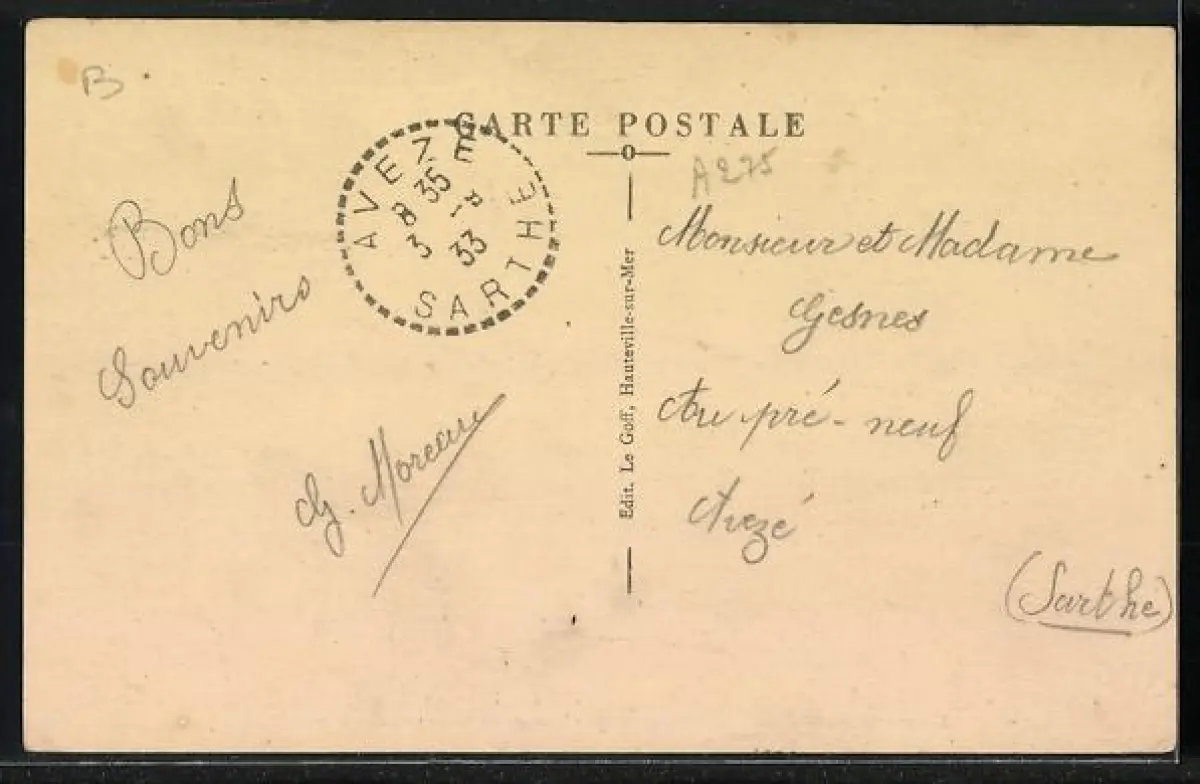 B.
CARTE POSTALE
A275
AVEZE
8 35
3 -8
33
SARTHE
Bons
Souvenirs
G. Moreau
Edit. Le Goff, Hauteville-sur-Mer
Monsieur et Madame
Gesnes
Au pré-neuf
Avezé
(Sarthe)